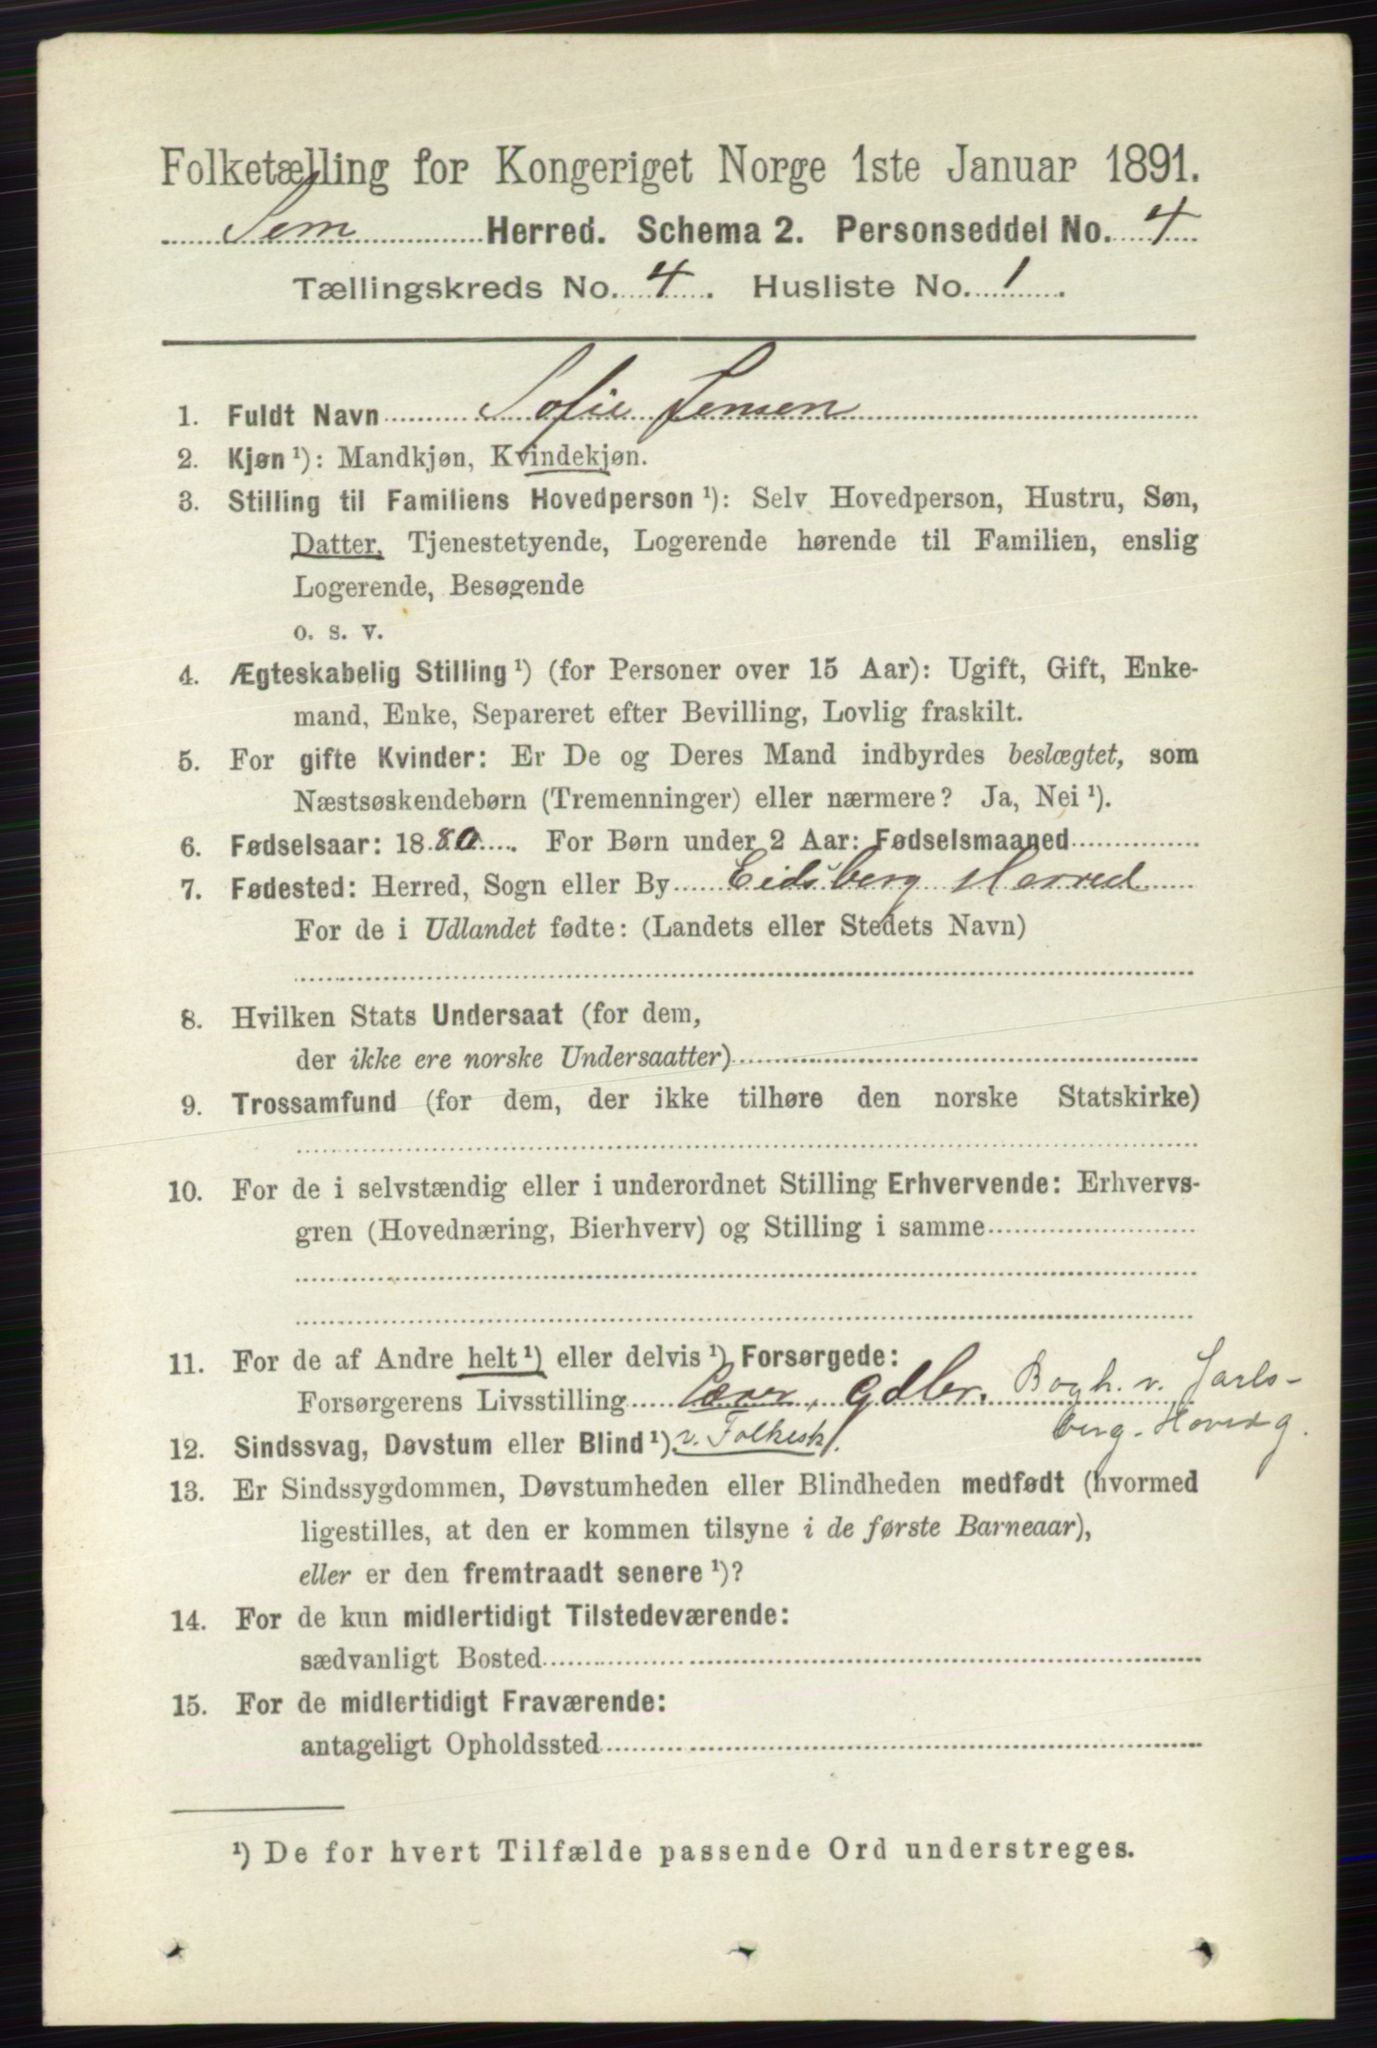 Folketælling for Kongeriget Norge 1ste Januar 1891.
Sem Herred. Schema 2. Personseddel No. 4
Tællingskreds No. 4. Husliste No. 1.
1. Fuldt Navn Sofie Jensen
2. Kjøn ¹): Mandkjøn, Kvindekjøn.
3. Stilling til Familiens Hovedperson ¹): Selv Hovedperson, Hustru, Søn,
Datter, Tjenestetyende, Logerende hørende til Familien, enslig
Logerende, Besøgende
o. s. v.
4. Ægteskabelig Stilling ¹) (for Personer over 15 Aar): Ugift, Gift, Enke-
mand, Enke, Separeret efter Bevilling, Lovlig fraskilt.
5. For gifte Kvinder: Er De og Deres Mand indbyrdes beslægtet, som
Næstsøskendebørn (Tremenninger) eller nærmere? Ja, Nei ¹).
6. Fødselsaar: 1880. For Børn under 2 Aar: Fødselsmaaned
7. Fødested: Herred, Sogn eller By Eidsberg Herred
For de i Udlandet fødte: (Landets eller Stedets Navn)
8. Hvilken Stats Undersaat (for dem,
der ikke ere norske Undersaatter)
9. Trossamfund (for dem, der ikke tilhøre den norske Statskirke)
10. For de i selvstændig eller i underordnet Stilling Erhvervende: Erhvervs-
gren (Hovednæring, Bierhverv) og Stilling i samme
11. For de af Andre helt ¹) eller delvis ¹) Forsørgede:
Forsørgerens Livsstilling Lærer, Gdbr. Bogh. v. Jarls-
berg. Hovedg.
12. Sindssvag, Døvstum eller Blind ¹). v. Folkesk.
13. Er Sindssygdommen, Døvstumheden eller Blindheden medfødt (hvormed
ligestilles, at den er kommen tilsyne i de første Barneaar),
eller er den fremtraadt senere ¹)?
14. For de kun midlertidigt Tilstedeværende:
sædvanligt Bosted
15. For de midlertidigt Fraværende:
antageligt Opholdssted
¹) De for hvert Tilfælde passende Ord understreges.